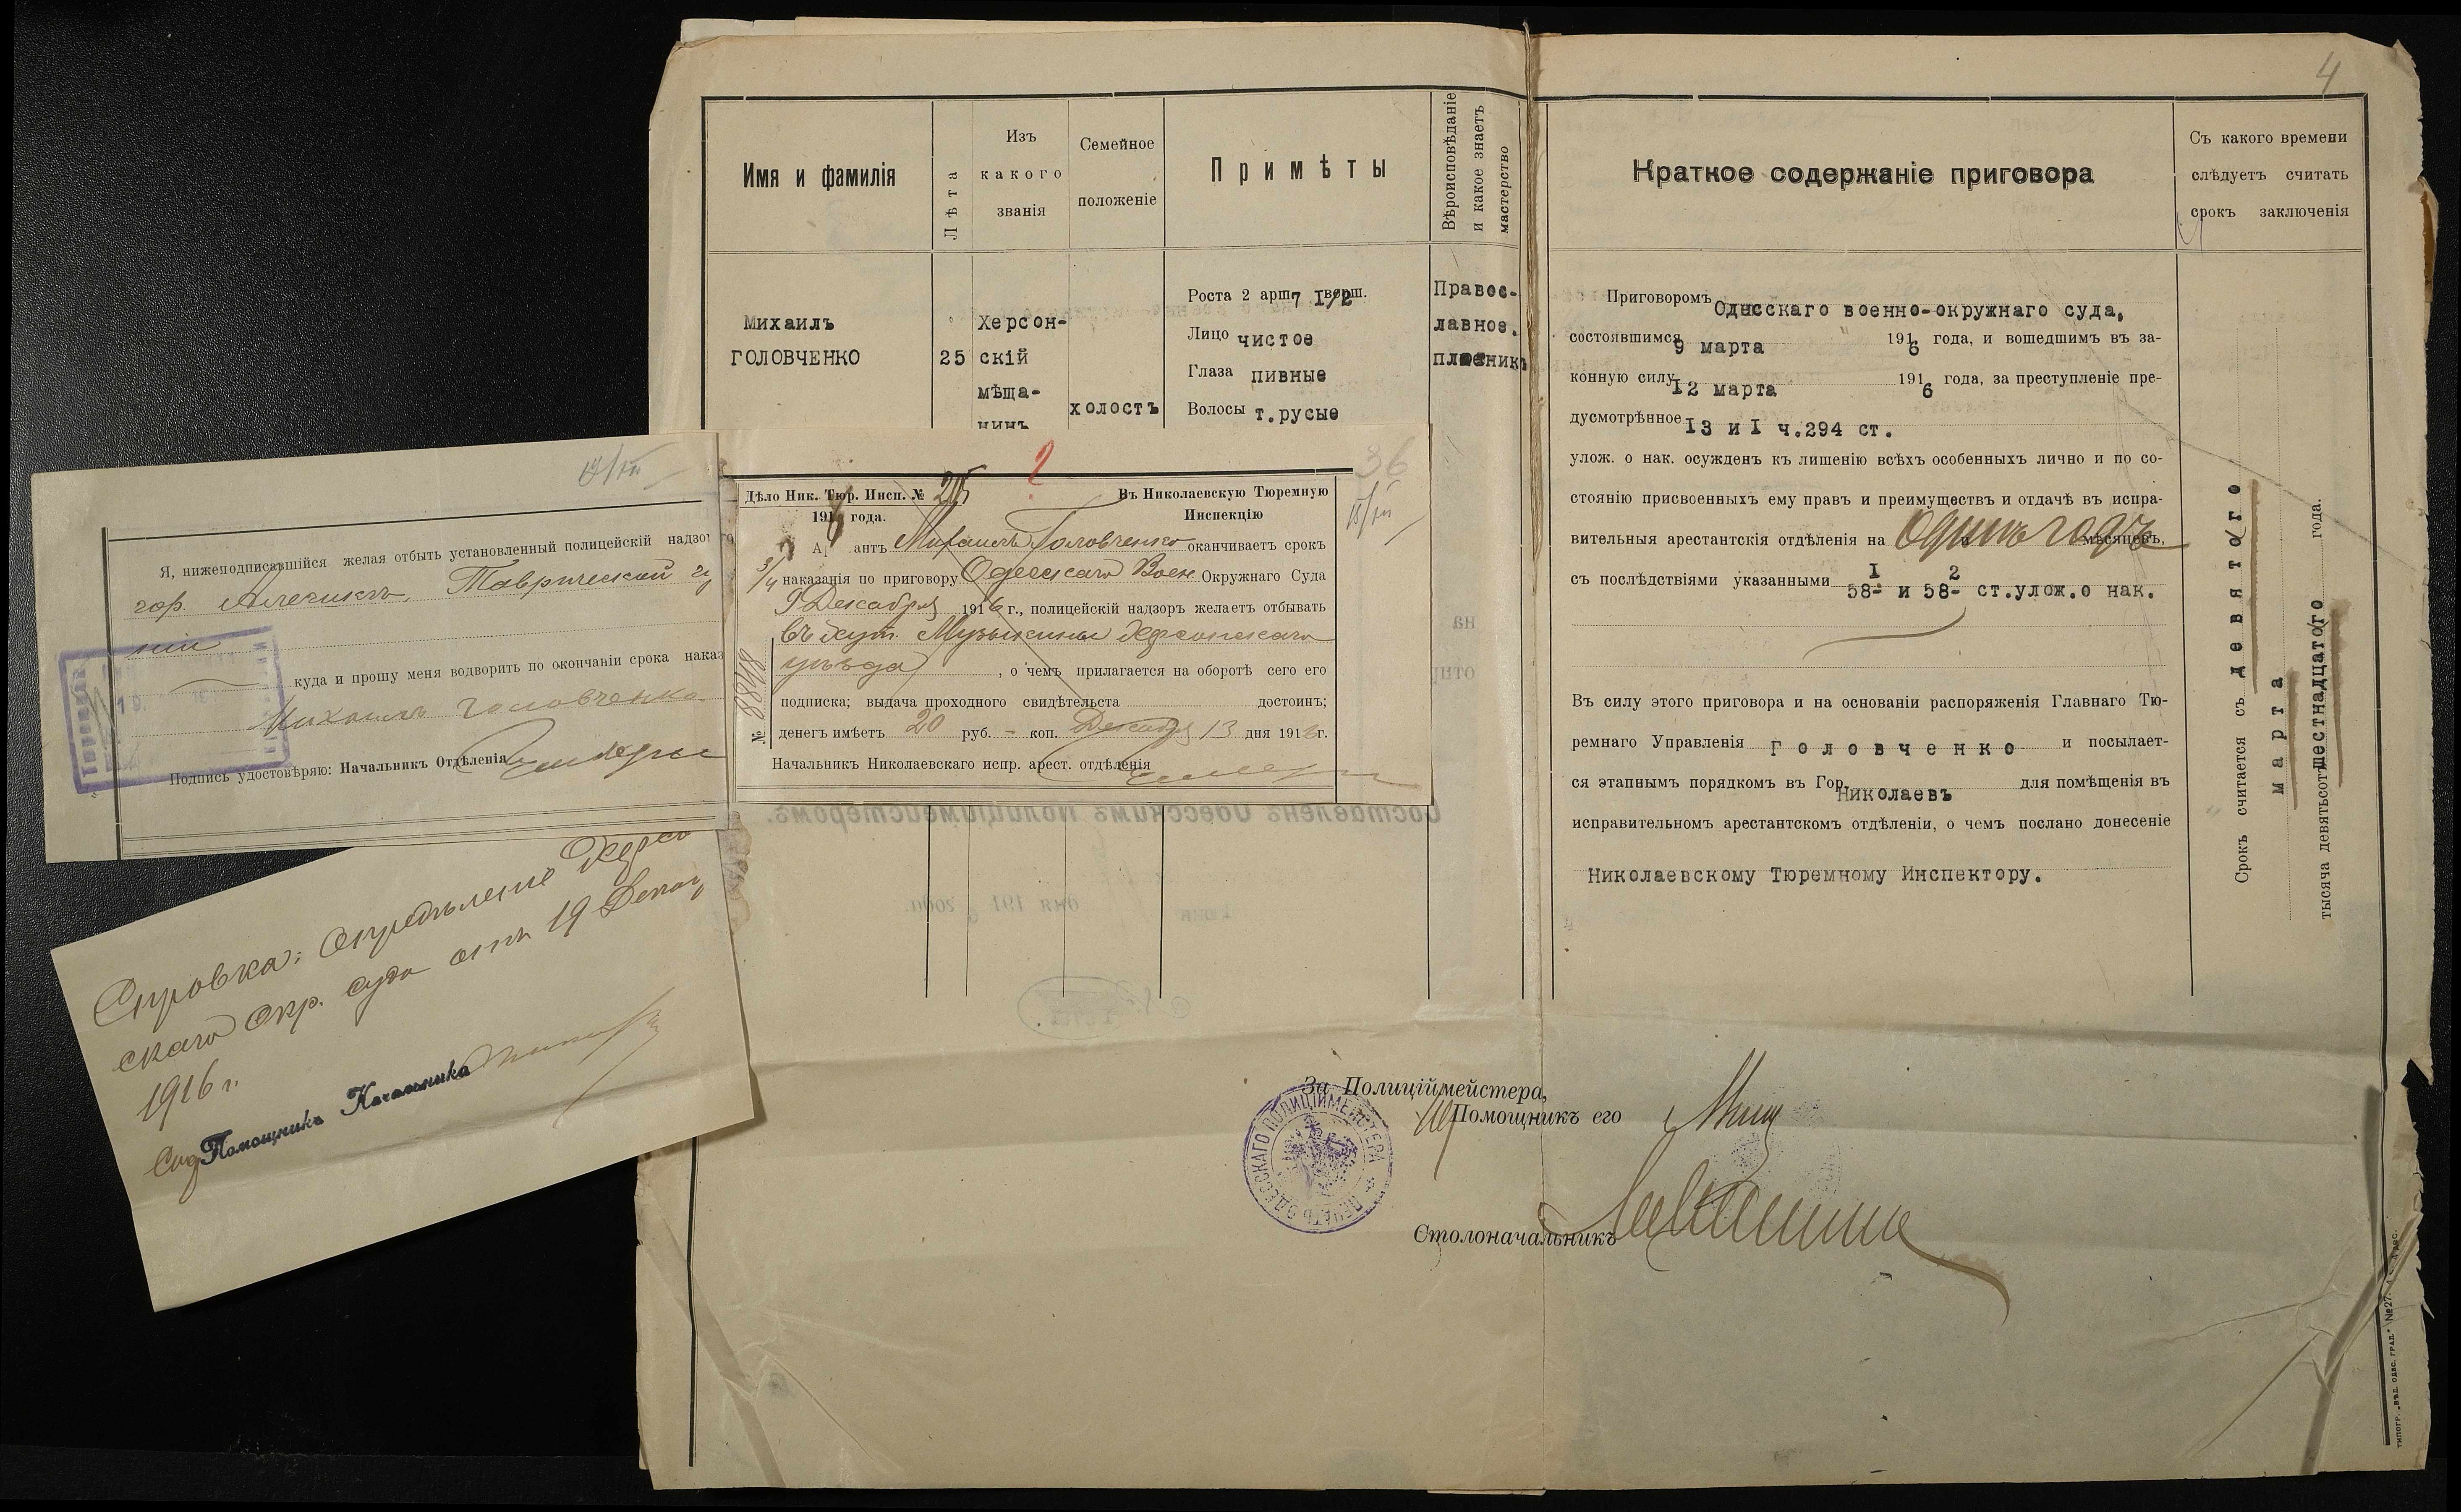 4
Имя и фамилія
Лѣта
Изъ
какого
званія
Семейное
положеніе
Примѣты
Вѣроисповѣданіе
и какое знаетъ
мастерство
Краткое содержаніе приговора
Съ какого времени
слѣдуетъ считать
срокъ заключенія
Михаилъ
ГОЛОВЧЕНКО
25
Херсон-
скій
мѣща-
нинъ
холостъ
Роста 2 арш. 7 I/2 верш.
Лицо чистое
Глаза пивные
Волосы т.русые
Правос-
лавное.
Приговоромъ Одесскаго военно-окружнаго суда,
состоявшимся 9 марта 1916 года, и вошедшимъ въ за-
конную силу I2 марта 1916 года, за преступленіе пре-
дусмотрѣнное I3 и I ч.294 ст.
улож. о нак. осужденъ къ лишенію всѣхъ особенныхъ лично и по со-
стоянію присвоенныхъ ему правъ и преимуществъ и отдачѣ въ испра-
вительныя арестантскія отдѣленія на Одинъ годъ мѣсяцевъ,
съ послѣдствіями указанными 58-I и 58-2 ст.улож.о нак.
Въ силу этого приговора и на основаніи распоряженія Главнаго Тю-
ремнаго Управленія Головченко и посылает-
ся этапнымъ порядкомъ въ Гор. Николаевъ для помѣщенія въ
исправительномъ арестантскомъ отдѣленіи, о чемъ послано донесеніе
Николаевскому Тюремному Инспектору.
Срокъ считается съ девятого
марта
тысяча девятьсотъ шестнадцатого года.
Я, нижеподписавшійся желая отбыть установленный полицейскій надзо
гор. Алешкинъ, Таврической гу
ніи
куда и прошу меня водворить по окончаніи срока наказ
Михаилъ Головченко
Подпись удостовѣряю: Начальникъ Отдѣленія
Дѣло Ник. Тюр. Инсп. №
1916 года.
36
Въ Николаевскую Тюремную
Инспекцію
антъ Михаилъ Головченко оканчиваетъ срокъ
наказанія по приговору Одесскаго Воен. Окружнаго Суда
9 Декабря 1916 г., полицейскій надзоръ желаетъ отбывать
въ хут. Музыкины Херсонскаго
уѣзда, о чемъ прилагается на оборотѣ сего его
подписка; выдача проходного свидѣтельства достоинъ;
денегъ имѣетъ 20 руб. - коп. Декабря 13 дня 1916г.
Начальникъ Николаевскаго испр. арест. отдѣленія
№ 8848
Справка: Опредѣленіе Херсо
скаго Окр. суда отъ 19 Декаб
1916 г.
Помощникъ Начальника
За Полиціймейстера,
Помощникъ его
ПЕЧАТЬ ОДЕССКАГО ПОЛИЦІЙМЕЙСТЕРА
Столоначальникъ